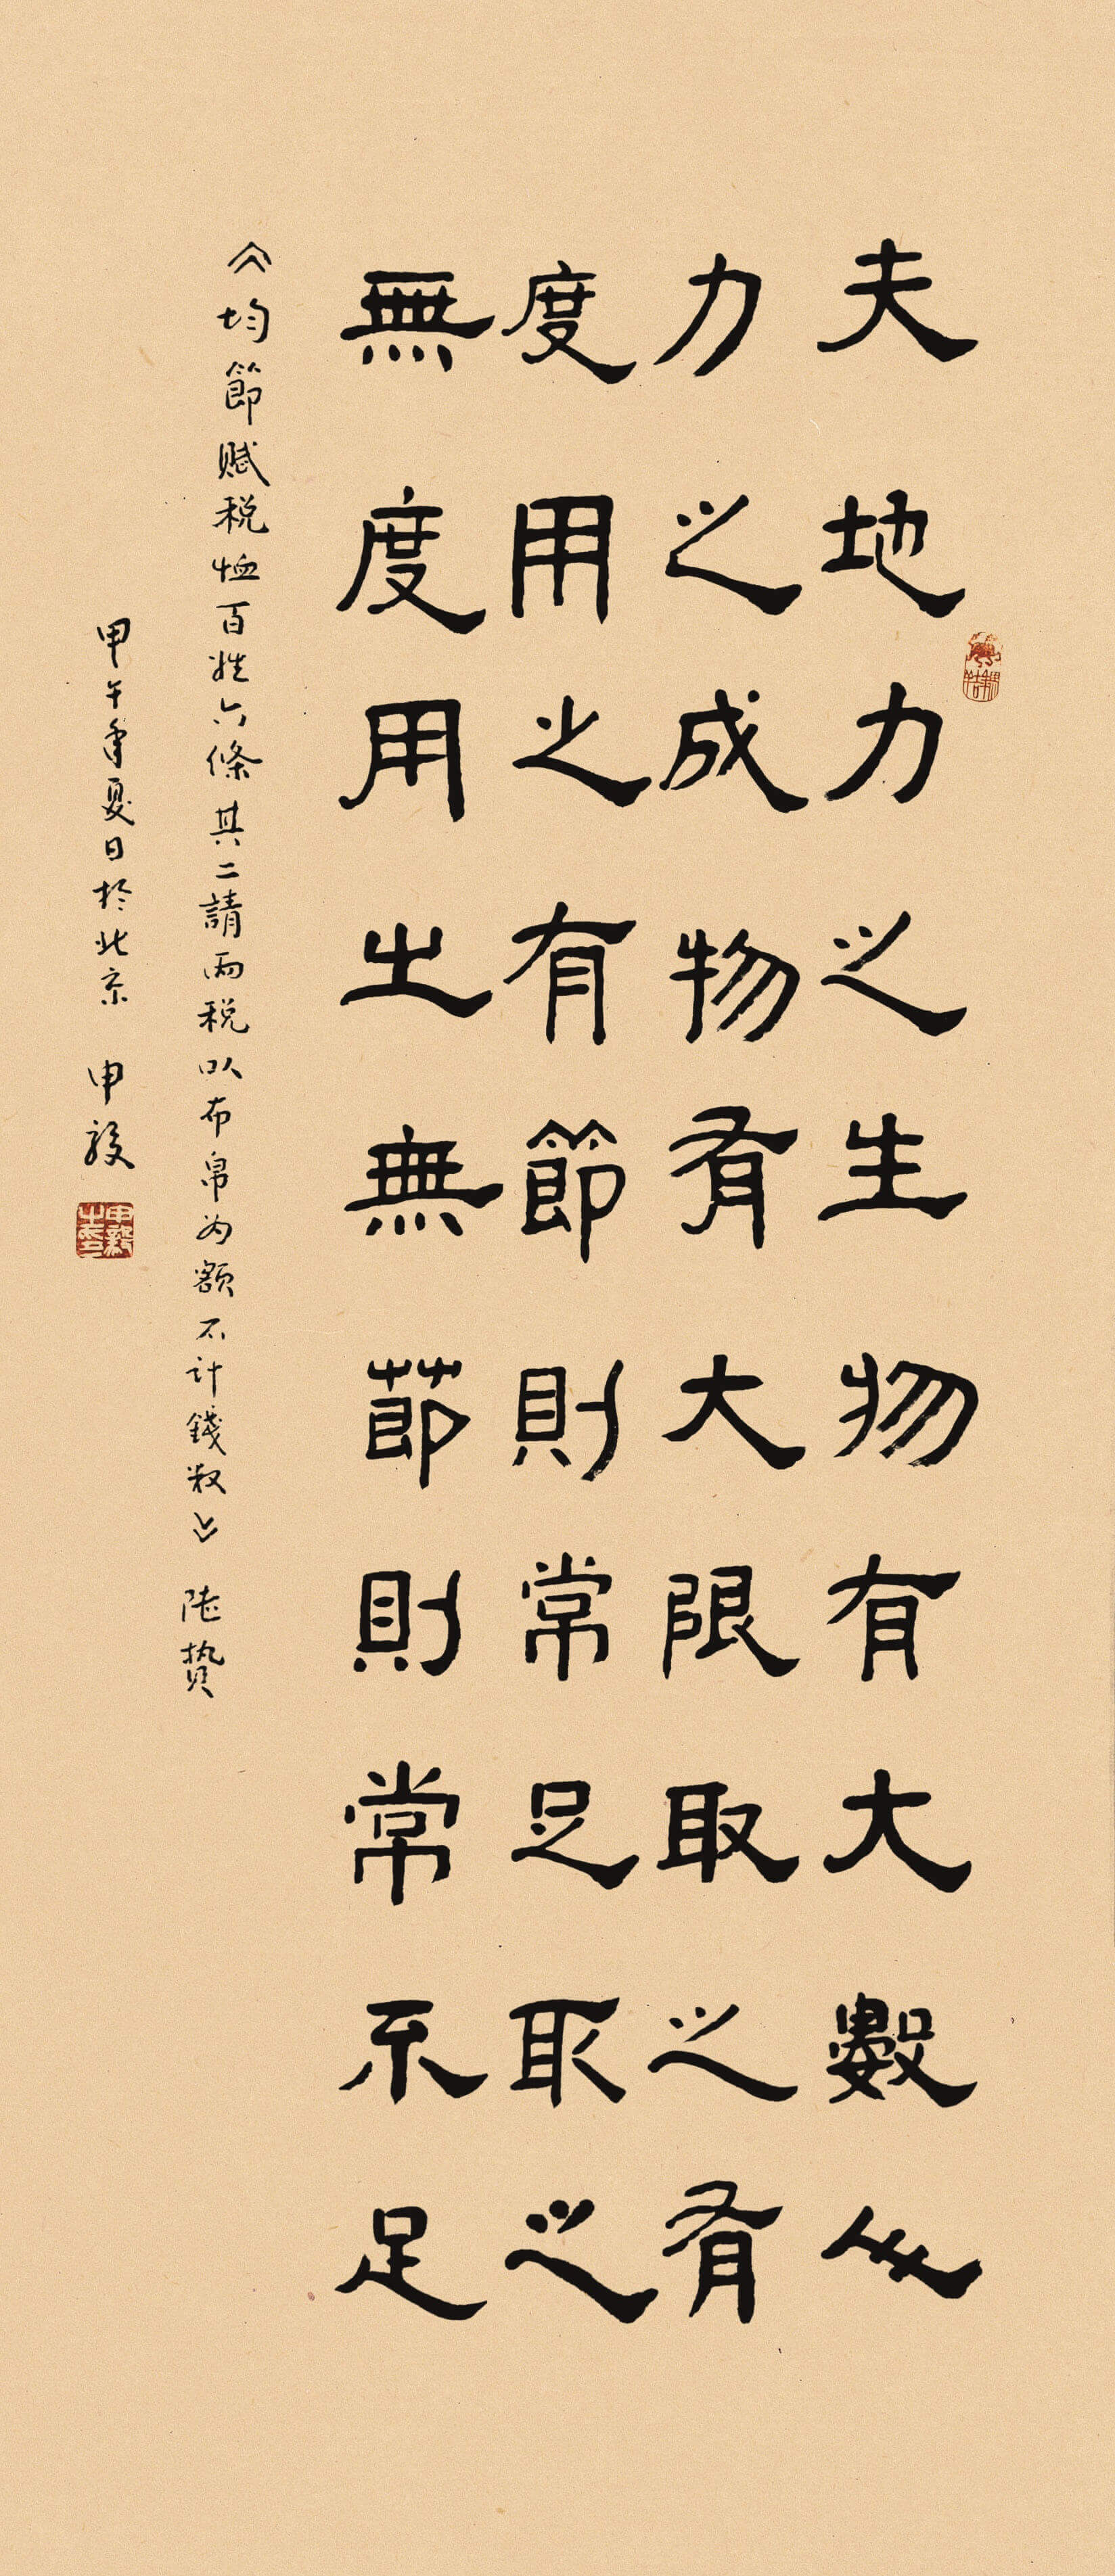 夫地力之生物有大數人
力之成物有大限取之有
度用之有節則常足取之
無度用之無節則常不足
《均節賦税恤百姓六條其二請兩税以布帛為額不計錢数》陸贄
甲午年夏日於北京 申毅